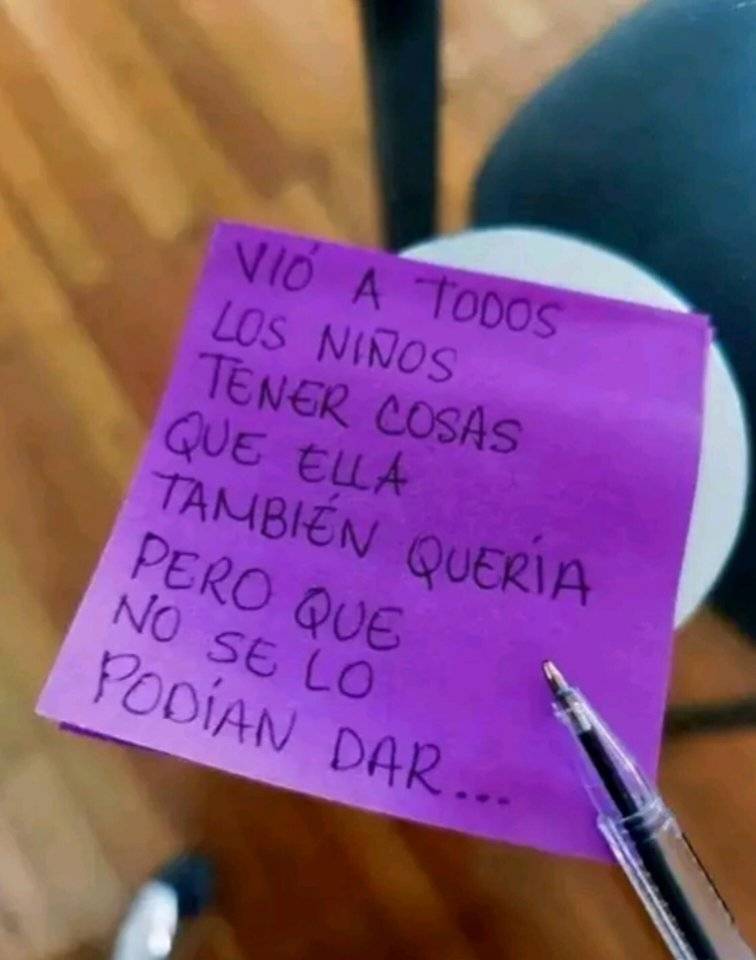 VIÓ A TODOS
LOS NIÑOS
TENER COSAS
QUE ELLA
TAMBIÉN QUERÍA
PERO QUE
NO SE LO
PODÍAN DAR...